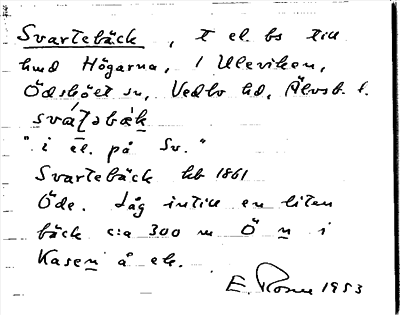 Svartebäck, t el. bs till
hmd Högarna, i Uleviken,
Ödsböet sn, Vedbo hd, Älvsb. l.
"i el. på Sv."
Svartebäck hb 1861
Öde. Låg intill en liten
bäck c:a 300 m Ö n i
Kasen å ek.
E. Rosell 1953